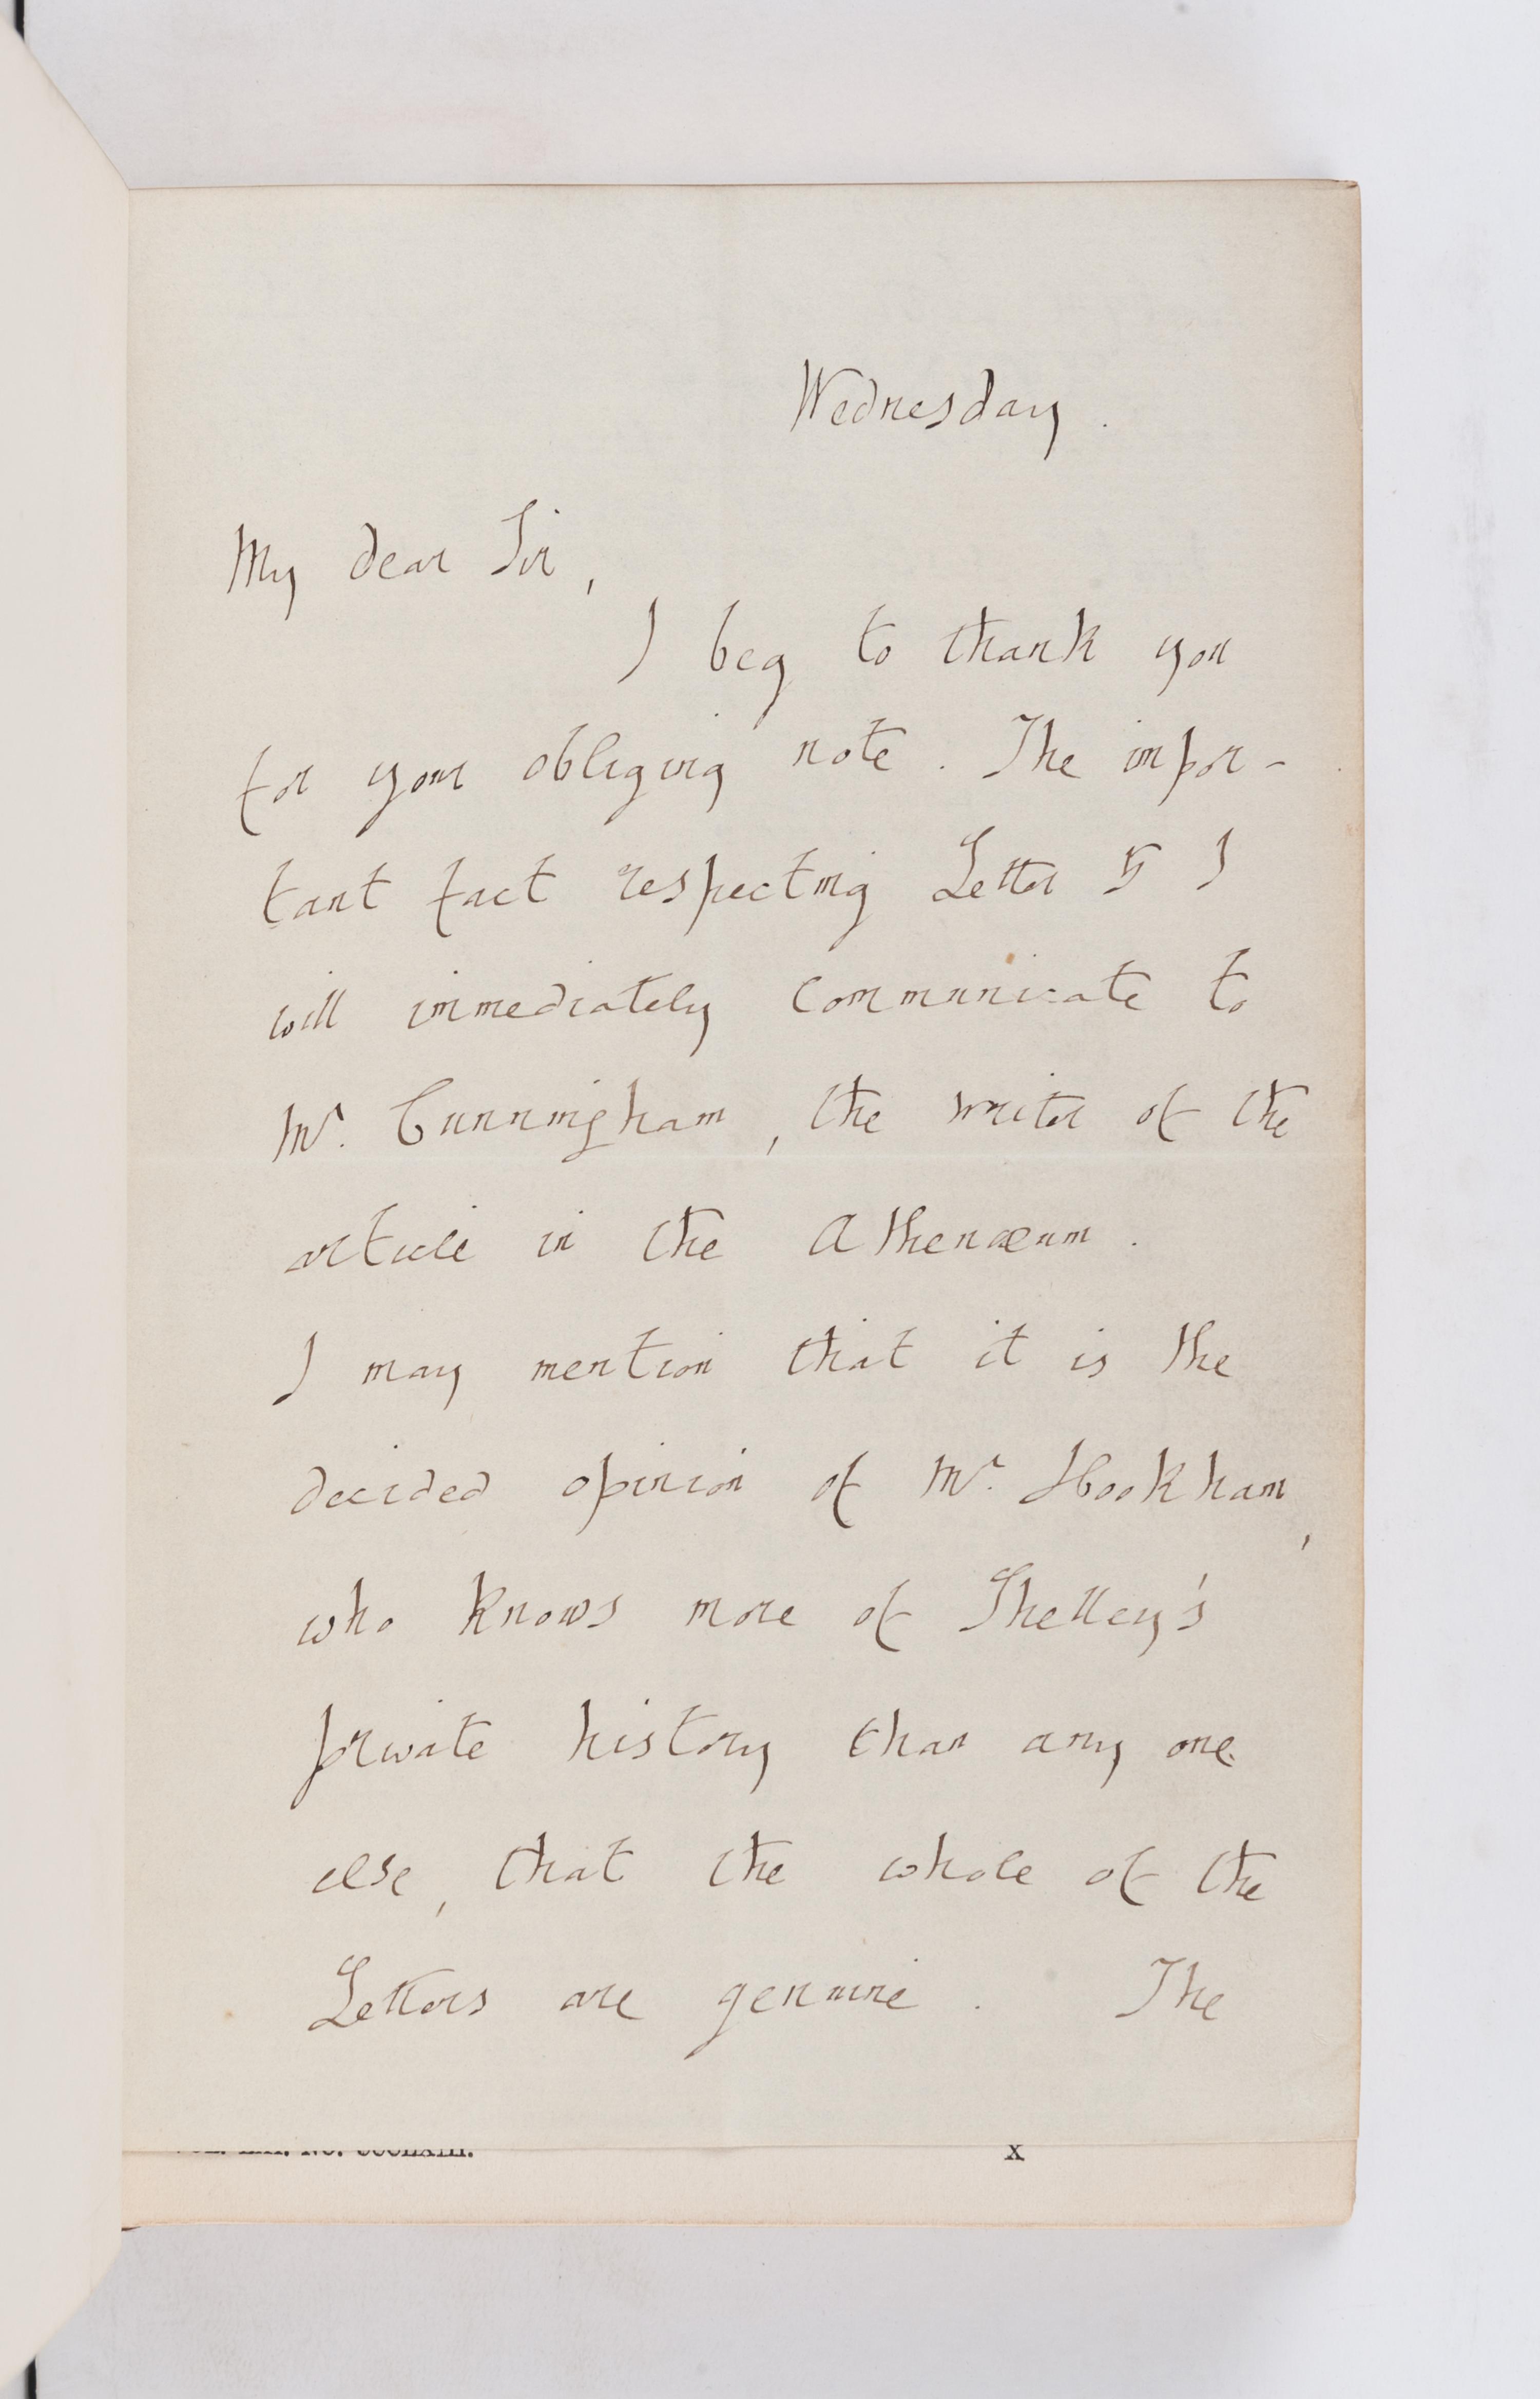 Wednesday.
My dear Sir,
I beg to thank you
for your obliging note. The impor-
tant fact respecting Letter 5 I
will immediately communicate to
Mr. Cunningham, the writer of the
article in the Athenæum.
I may mention that it is the
decided opinion of Mr. Hookham,
who knows more of Shelley's
private history than any one
else, that the whole of the
Letters are genuine. The
X